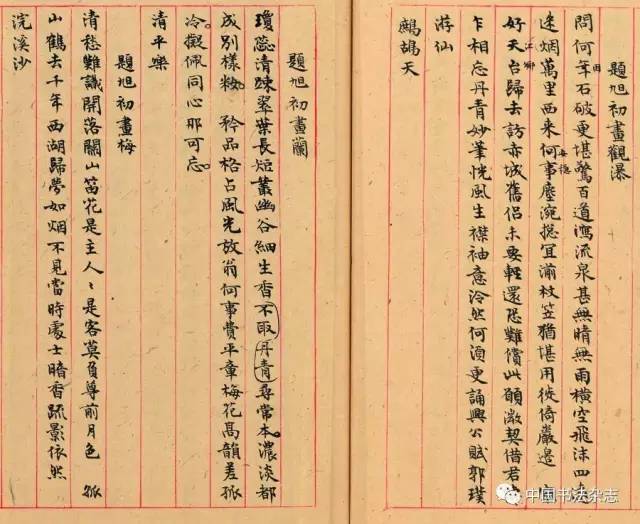 題旭初畫觀瀑
問何年石破更堪驚百道瀉流泉甚無晴無雨橫空飛沫四遠
迷烟萬里西来何事塵涴揔宜湔杖笠猶堪用徙倚巖邊
好天台歸去訪赤城舊侣未要輕還恐難償此願激契借君
乍相忘丹青妙筆恍風生襟袖意泠然何須更誦興公賦郭璞
游仙
鷓鴣天
題旭初畫蘭
瓊蕊清踈翠葉長短叢幽谷細生香不取丹青尋常本濃淡都
成別樣粧 矜品格占風光放翁何事費平章梅花高韻差孤
冷觀佩同心那可忘
清平樂
題旭初畫梅
清愁難識開落關山笛花是主人〻是客莫負尊前月色 孤
山鶴去千年西湖歸夢如烟不見當時處士暗香疏影依然
浣溪沙
中国书法杂志